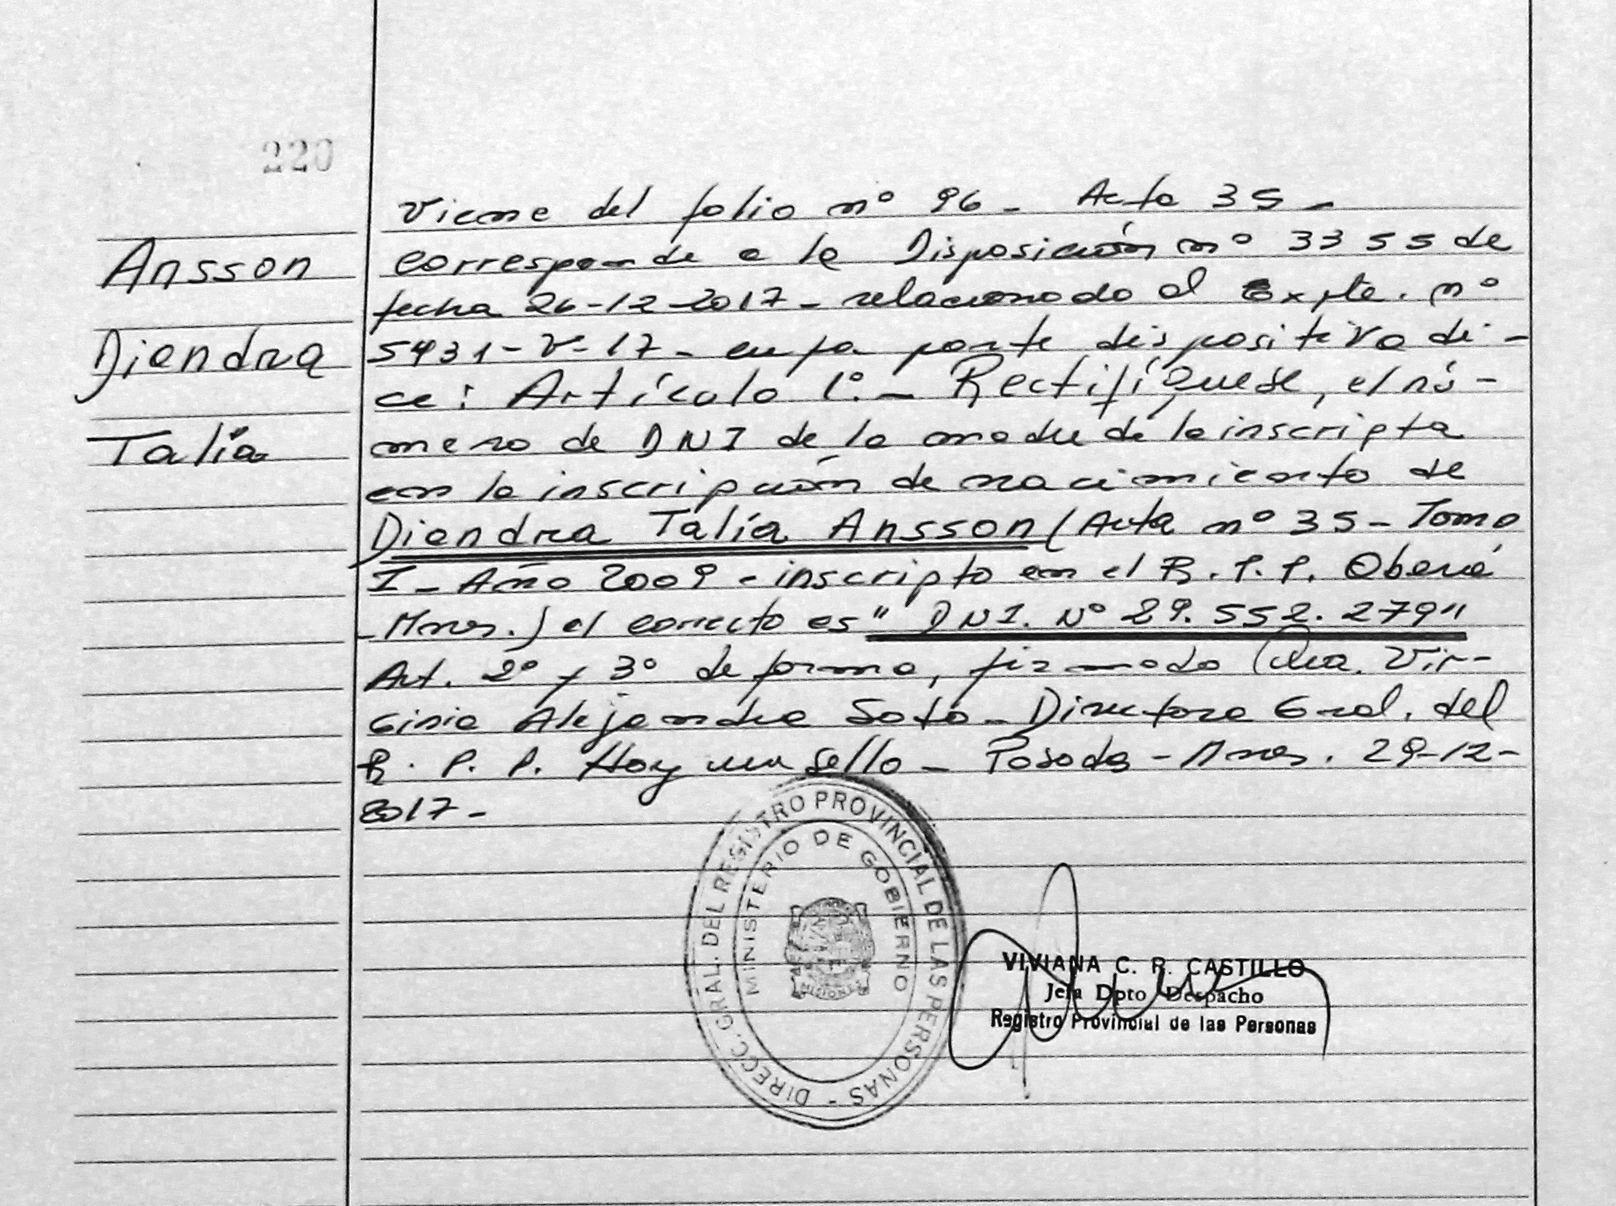 220
Ansson
Diendra
Talía
Viene del folio nº 96 - Acta 35 -
corresponde a la Disposición nº 3355 de
fecha 26-12-2017 - relacionado al Expte. nº
5431-V-17 - cuya parte dispositiva di-
ce: Artículo 1º. - Rectifíquese, el nú-
mero de DNI de la madre de la inscripta
en la inscripción de nacimiento de
Diendra Talía Ansson (Acta nº 35 - Tomo
I - Año 2009 - inscripto en el R.P.P. Oberá
- Mnes.) el correcto es "DNI. Nº 29.552.279"
Art. 2º y 3º de forma, firmado Dra. Vir-
ginia Alejandra Soto - Directora Gral. del
R. P. P. Hay un sello - Posadas - Mnes. 29-12-
2017 -
DIRECC. GRAL. DEL REGISTRO PROVINCIAL DE LAS PERSONAS -
MINISTERIO DE GOBIERNO
MISIONES
VIVIANA C. R. CASTILLO
Jefa Dpto Despacho
Registro Provincial de las Personas